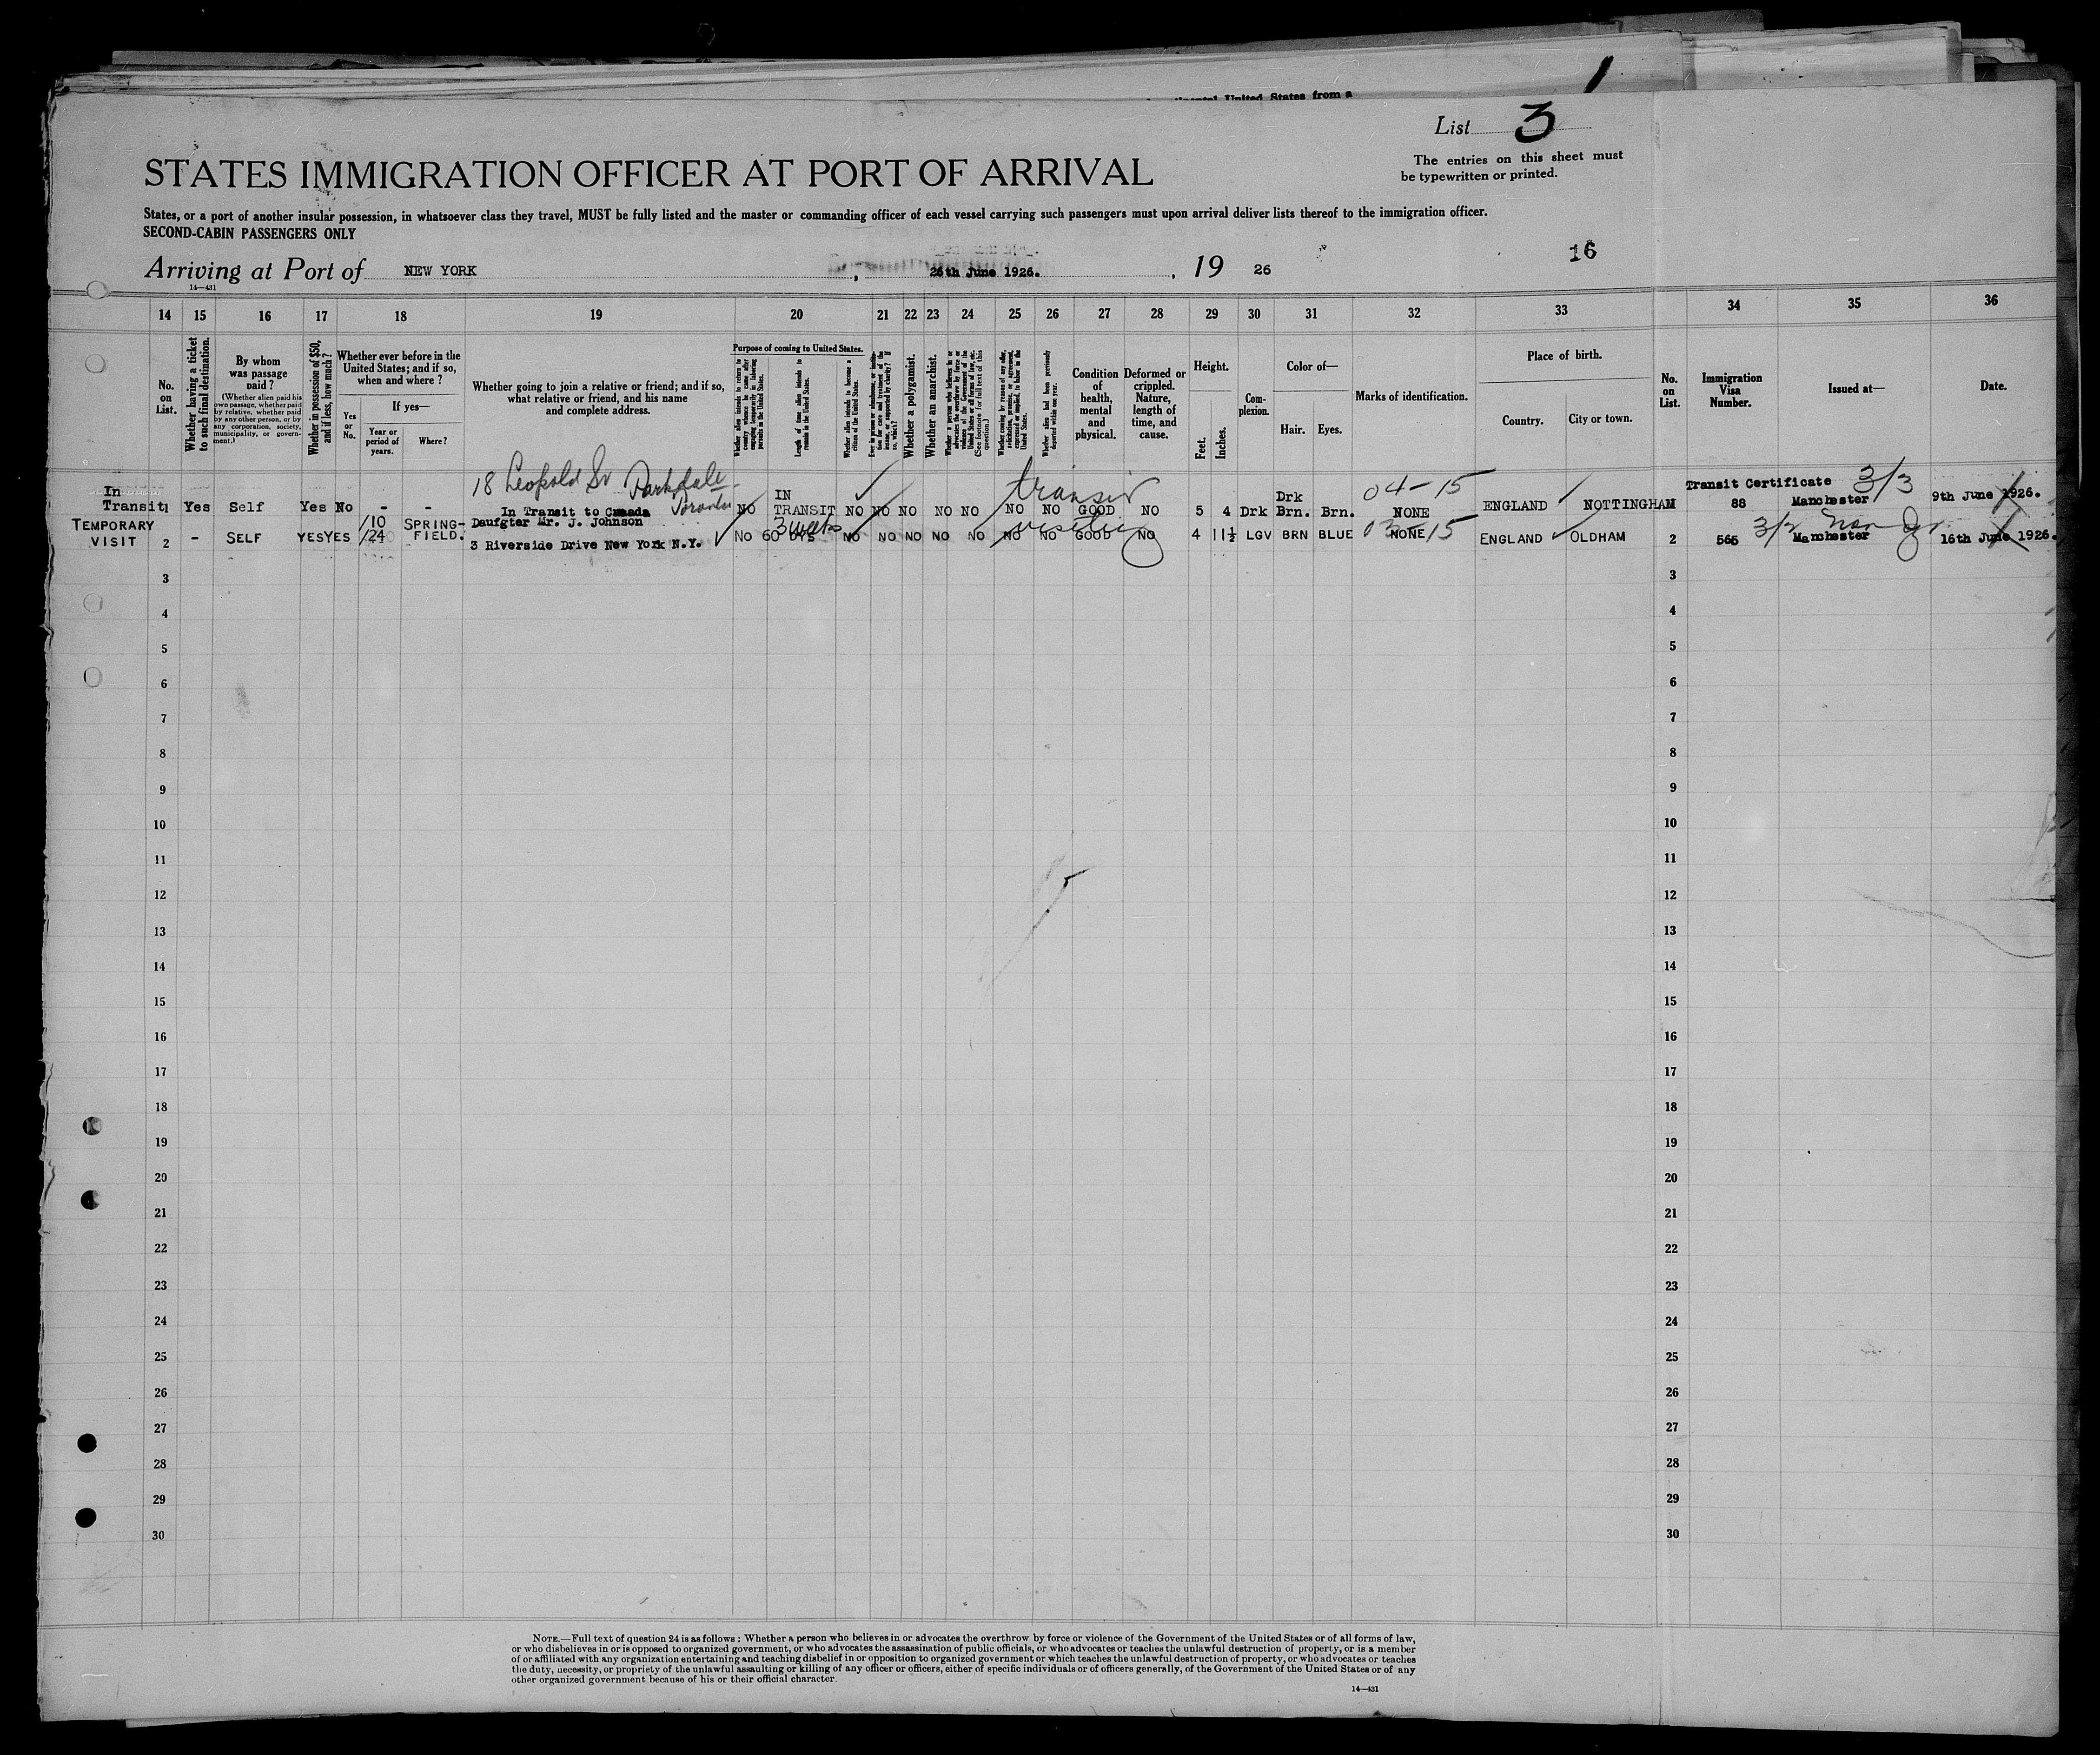 1
tinental United States from a
List 3
The entries on this sheet must
be typewritten or printed.
STATES IMMIGRATION OFFICER AT PORT OF ARRIVAL
States, or a port of another insular possession, in whatsoever class they travel, MUST be fully listed and the master or commanding officer of each vessel carrying such passengers must upon arrival deliver lists thereof to the immigration officer.
SECOND-CABIN PASSENGERS ONLY
Arriving at Port of NEW YORK, 26th June 1926., 19 26
16
14—431
14 15 16 17 18 19 20 21 22 23 24 25 26 27 28 29 30 31 32 33 34 35 36
No. on List.
Whether having a ticket to such final destination.
By whom was passage paid?
(Whether alien paid his own passage, whether paid by relative, whether paid by any other person, or by any corporation, society, municipality, or government.)
Whether in possession of $50, and if less, how much?
Whether ever before in the United States; and if so, when and where?
Yes or No.
If yes—
Year or period of years.
Where?
Whether going to join a relative or friend; and if so, what relative or friend, and his name and complete address.
Purpose of coming to United States.
Whether alien intends to return to country whence he came after engaging temporarily in laboring pursuits in the United States.
Length of time alien intends to remain in the United States.
Whether alien intends to become a citizen of the United States.
Whether a polygamist.
Whether an anarchist.
(See footnote for full text of this question.)
Whether alien had been previously deported within one year.
Condition of health, mental and physical.
Deformed or crippled. Nature, length of time, and cause.
Height.
Feet.
Inches.
Complexion.
Color of—
Hair.
Eyes.
Marks of identification.
Place of birth.
Country.
City or town.
No. on List.
Immigration Visa Number.
Issued at—
Date.
18 Leopold St Parkdale Toronto
In Transit 1 Yes Self Yes No - - In Transit to Canada NO IN TRANSIT NO NO NO NO NO NO NO GOOD NO 5 4 Drk Drk Brn. Brn. NONE ENGLAND NOTTINGHAM Transit Certificate 88 Manchester 9th June 1926.
transit 04-15 3/3
TEMPORARY VISIT 2 - SELF YES YES /10 /24 SPRING-FIELD. Daufgter Mr. J. Johnson
3 Riverside Drive New York N.Y. NO 60 DYS NO NO NO NO NO NO NO GOOD NO 4 11½ LGV BRN BLUE NONE ENGLAND OLDHAM 2 565 Manchester 16th June 1926.
3 weeks
3 3
4 4
5 5
6 6
7 7
8 8
9 9
10 10
11 11
12 12
13 13
14 14
15 15
16 16
17 17
18 18
19 19
20 20
21 21
22 22
23 23
24 24
25 25
26 26
27 27
28 28
29 29
30 30
NOTE.—Full text of question 24 is as follows: Whether a person who believes in or advocates the overthrow by force or violence of the Government of the United States or of all forms of law,
or who disbelieves in or is opposed to organized government, or who advocates the assassination of public officials, or who advocates or teaches the unlawful destruction of property, or is a member
of or affiliated with any organization entertaining and teaching disbelief in or opposition to organized government or which teaches the unlawful destruction of property, or who advocates or teaches
the duty, necessity, or propriety of the unlawful assaulting or killing of any officer or officers, either of specific individuals or of officers generally, of the Government of the United States or of any
other organized government because of his or their official character.
14—431